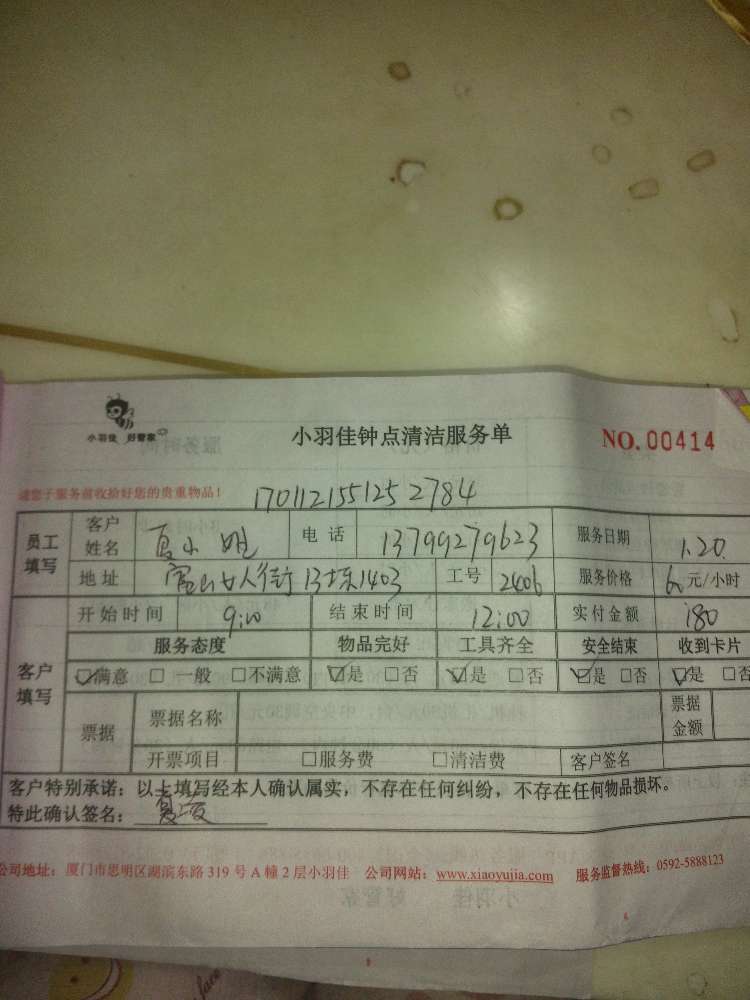 小羽佳 好管家
小羽佳钟点清洁服务单
NO.00414
请您于服务前收拾好您的贵重物品！
170112155125 2784
员工填写 客户姓名 夏小姐 电话 13799279623 服务日期 1.20.
地址 富山女人街13栋1403 工号 2406 服务价格 60元/小时
客户填写 开始时间 9:00 结束时间 12:00 实付金额 180
服务态度 物品完好 工具齐全 安全结束 收到卡片
☑满意 □一般 □不满意 ☑是 □否 ☑是 □否 ☑是 □否 ☑是 □否
票据 票据名称 票据金额
开票项目 □服务费 □清洁费 客户签名
客户特别承诺：以上填写经本人确认属实，不存在任何纠纷，不存在任何物品损坏。
特此确认签名：
公司地址：厦门市思明区湖滨东路319号A幢2层小羽佳 公司网站：www.xiaoyujia.com 服务监督热线：0592-5888123